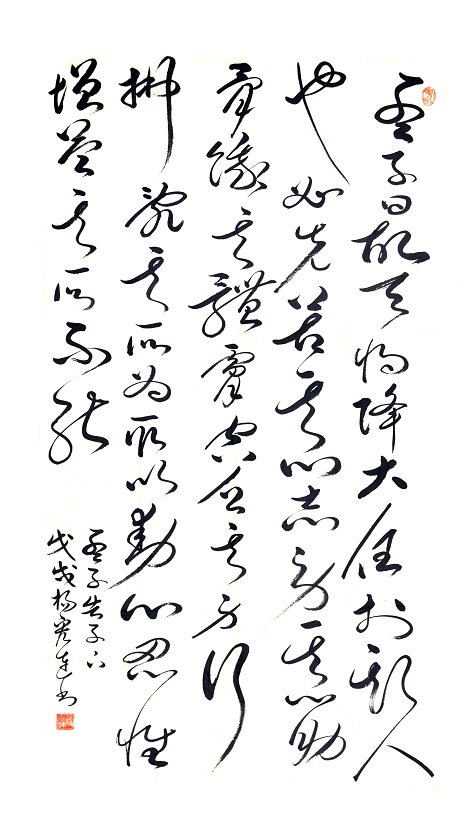 孟子曰故天將降大任於斯人
也必先苦其心志勞其筋
骨餓其體膚空乏其身行
拂亂其所為所以動心忍性
增益其所不能
孟子告子下
戊戌楊书